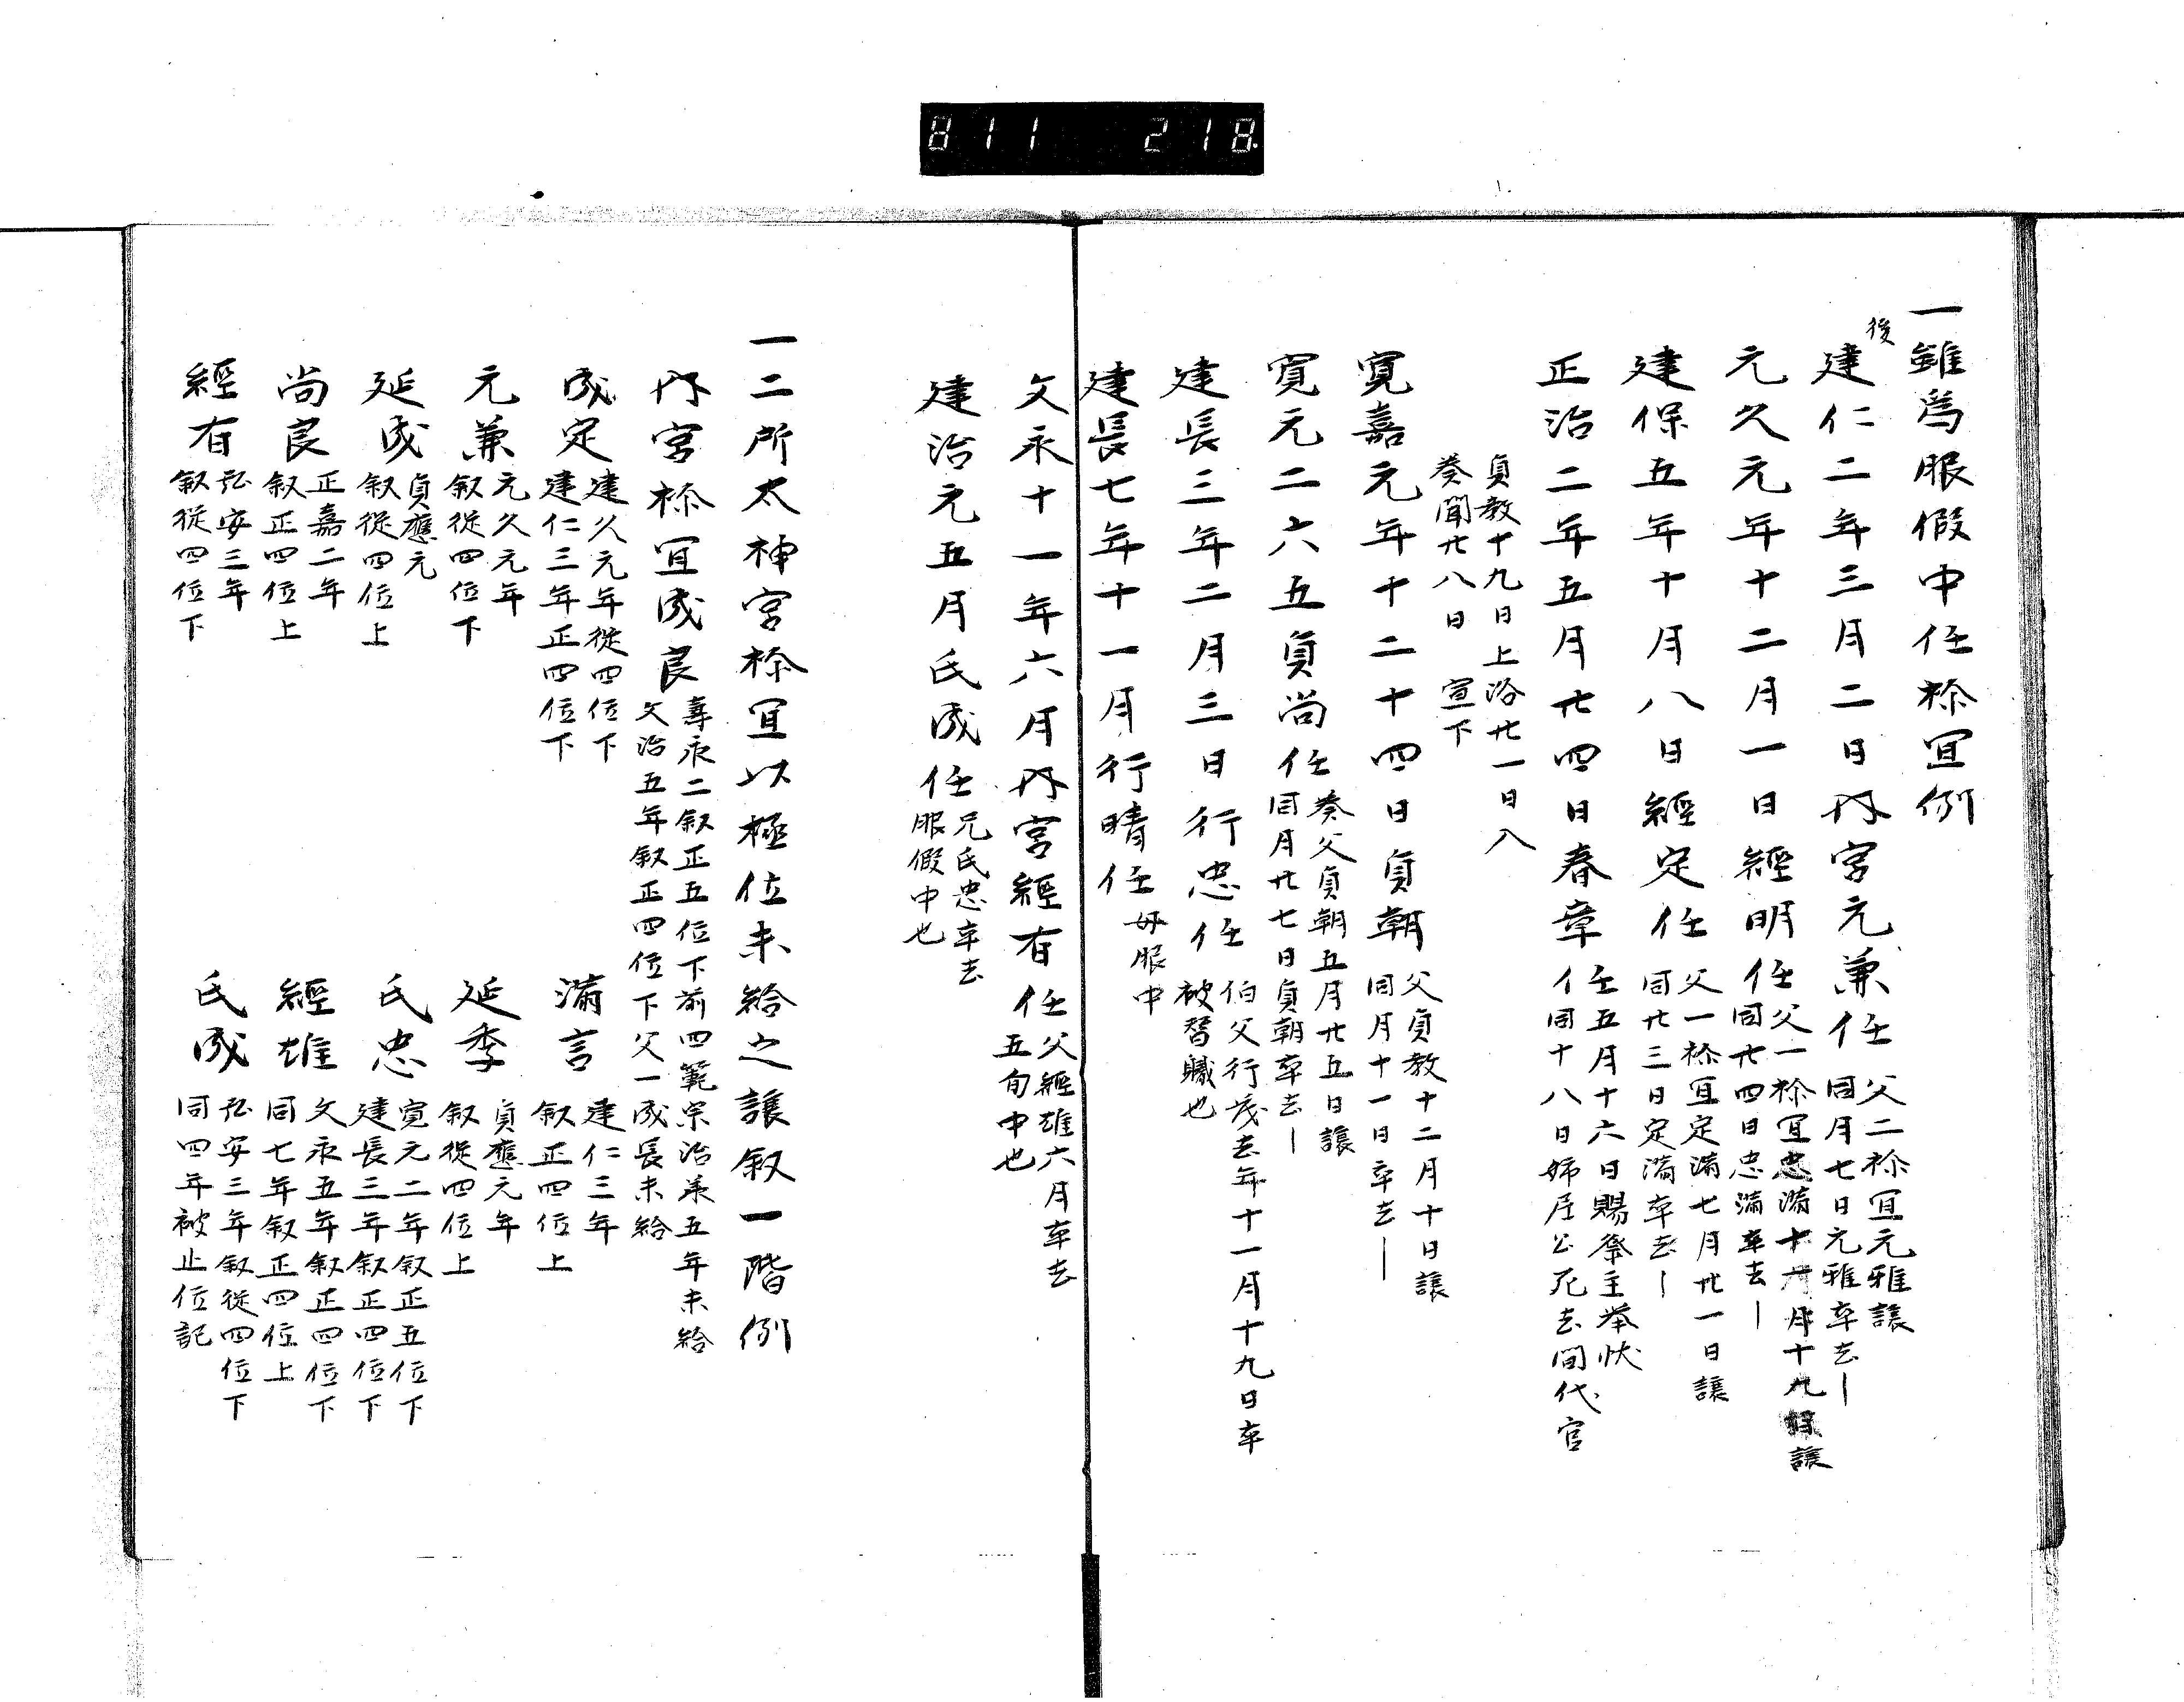 811 218
一雖為服假中任祢宜例
後
建仁二年三月二日内宮元兼任
父二祢宜元雅譲
同月七日元雅卒去―
元久元年十二月一日經明任
父一祢宜忠満十月十九日譲
同廿四日忠満卒去―
建保五年十月八日經定任
父一祢宜定満七月廿一日譲
同廿三日定満卒去―
正治二年五月廿四日春章
任五月十六日賜祭主挙状
同十八日姉
死去間代官
貞教十九日上洛廿一日入
奏聞廿八日 宣下
寛嘉元年十二十四日貞朝
父貞教十二月十日譲
同月十一日卒去―
寛元二六五貞尚任
養父貞朝五月廿五日譲
同月廿七日貞朝卒去―
建長三年二月三日行忠任
伯父行茂去年十一月十九日卒
被替職也
建長七年十一月行晴任
母服中
文永十一年六月内宮經有任
父經雄六月卒去
五旬中也
建治元五月氏成任
兄氏忠卒去
服假中也
一二所太神宮祢宜以極位未給之譲叙一階例
内宮祢宜成良
壽永二叙正五位下前四範宗治承五年未給
文治五年叙正四位下父一成長未給
成定
建久元年從四位下
建仁三年正四位下
満言
建仁三年
叙正四位上
元兼
元久元年
叙從四位下
延季
貞應元年
叙從四位上
延成
貞應元
叙從四位上
氏忠
寛元二年叙正五位下
建長三年叙正四位下
尚良
正嘉二年
叙正四位上
經雄
文永五年叙正四位下
同七年叙正四位上
經有
弘安三年
叙從四位下
氏成
弘安三年叙從四位下
同四年被止位記